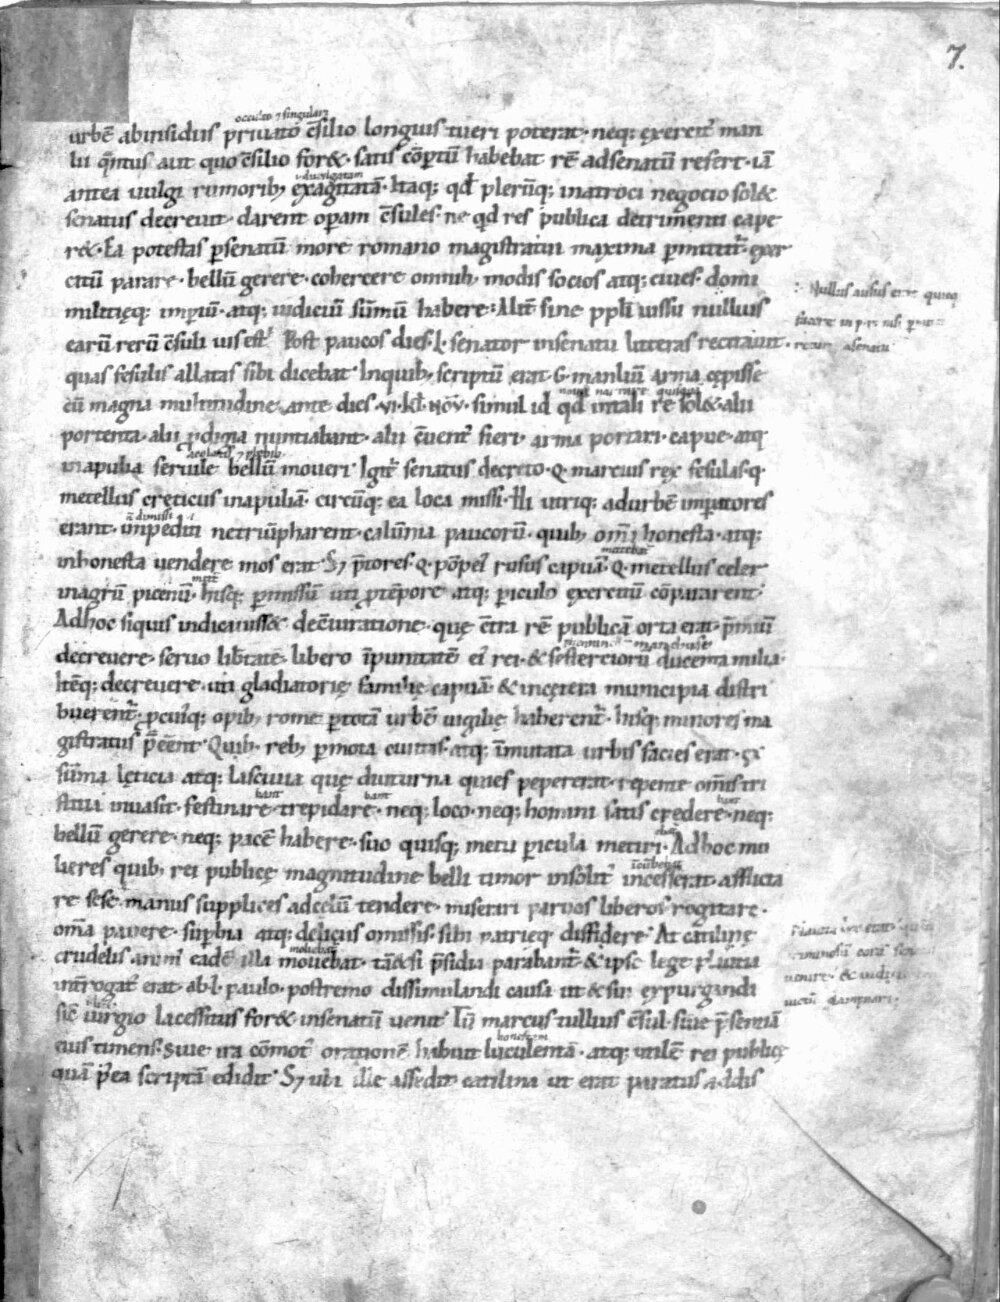 7.
occulto ⁊ singulari
urbē abinsidiis privato c̄silio longius tueri poterat· neq; exercit᷒ man
lii q̄ntus aut quo c̄silio for&· satis cōptū habebat rē adsenatū refert· iā
antea vulgi rumorib; exagitatā· Itaq; qd̄ plerūq; inatroci negocio sol&
senatus decrevit· darent opam c̄sules· ne qd res publica detrimenti cape
r&· Ea potestas p̱senatū more romano magistratui maxima p̱mittit᷒· exer
citū parare· bellū gerere· cohercere omnib; modis socios atq; cives· domi
militięq; imp̱iū· atq; iudiciū sūmū habere· Alit̄ sine pp̄li iussu nullius
Nullus ausus
earū rerū c̄suli ius est᷒ Post paucos dies· l· senator insenatu litteras recitavit·
quas fesulis allatas sibi dicebat· Inquib; scriptū erat· G· manliū arma cępisse
cū magna multitudine· ante dies· vi· kl̄· nov̄· simul id qd intali re sol&· alii
portenta· alii p̱digia nuntiabant· alii c̄vent᷒ fieri· arma portari· capue· atq
⁊ plebib;
inapulia servile bellū moveri· Igit᷒ senatus decreto· Q· marcius rex fesulas· q·
metellus cręticus inapuliā· circūq; ea loca missi· Hi utriq; adurbē imp̱atores
erant· inpediti netriūpharent· calūnia paucorū· quib; om̄ia honesta· atq;
inhonesta vendere mos erat· S; p̄tores· Q· pōpei᷒ rufus capuā· Q· metellus celer
inagrū picenū· hisq; p̱missū uti p̱tēpore atq; p̱iculo exercitū cōpararent·
Adhoc siquis indicaviss& dec̄iuratione· quę c̄tra rē publicā orta erat· p̄miū
decrevere· servo lib̄tatē· libero īpunitatē ei᷒ rei· & sestertiorū ducenta milia·
Itēq; decrevere· uti gladiatorię familię capuā· & incętera municipia distri
buerent᷒· p̱cui᷒q; opib; rome p̱totā urbē vigilię haberent᷒· hisq; minores ma
gistratus p̄eēnt· Quib; reb; p̱mota civitas· atq; īmutata urbis facies erat· ex
sūma lęticia atq; lascivia quę diuturna quies pepererat· repente om̄is tri
bant
bant
stitia invasit· festinare· trepidare· neq; loco· neq; homini satis credere· neq;
bellū gerere· neq; pacē habere· suo quisq; metu p̱icula metiri· Adhoc mu
lieres quib; rei publicę magnitudine belli timor insolit᷒ incesserat· afflicta
re sese· manus supplices adcelū tendere· miserari parvos liberos· rogitare·
om̄a pavere· sup̱bia atq; deliciis omissis· sibi patrieq diffidere· At catilinę
crudelis animi᷒ eadē illa movebat· tā&si p̄sidia parabant· & ipse lege plautia
int̄rogat᷒ erat· ab·l· paulo· postremo dissimulandi causa ut & sui expurgandi
sic̄ iurgio lacessitus for& insenatū venit· Tū marcus tullius c̄sul· sive p̄sentiā
eius timens· sive ira cōmot᷒ orationē habuit luculentā· atq; utilē rei publicę
quā p̄ea scriptā edidit· S; ubi ille assedit catilina ut erat paratus addis